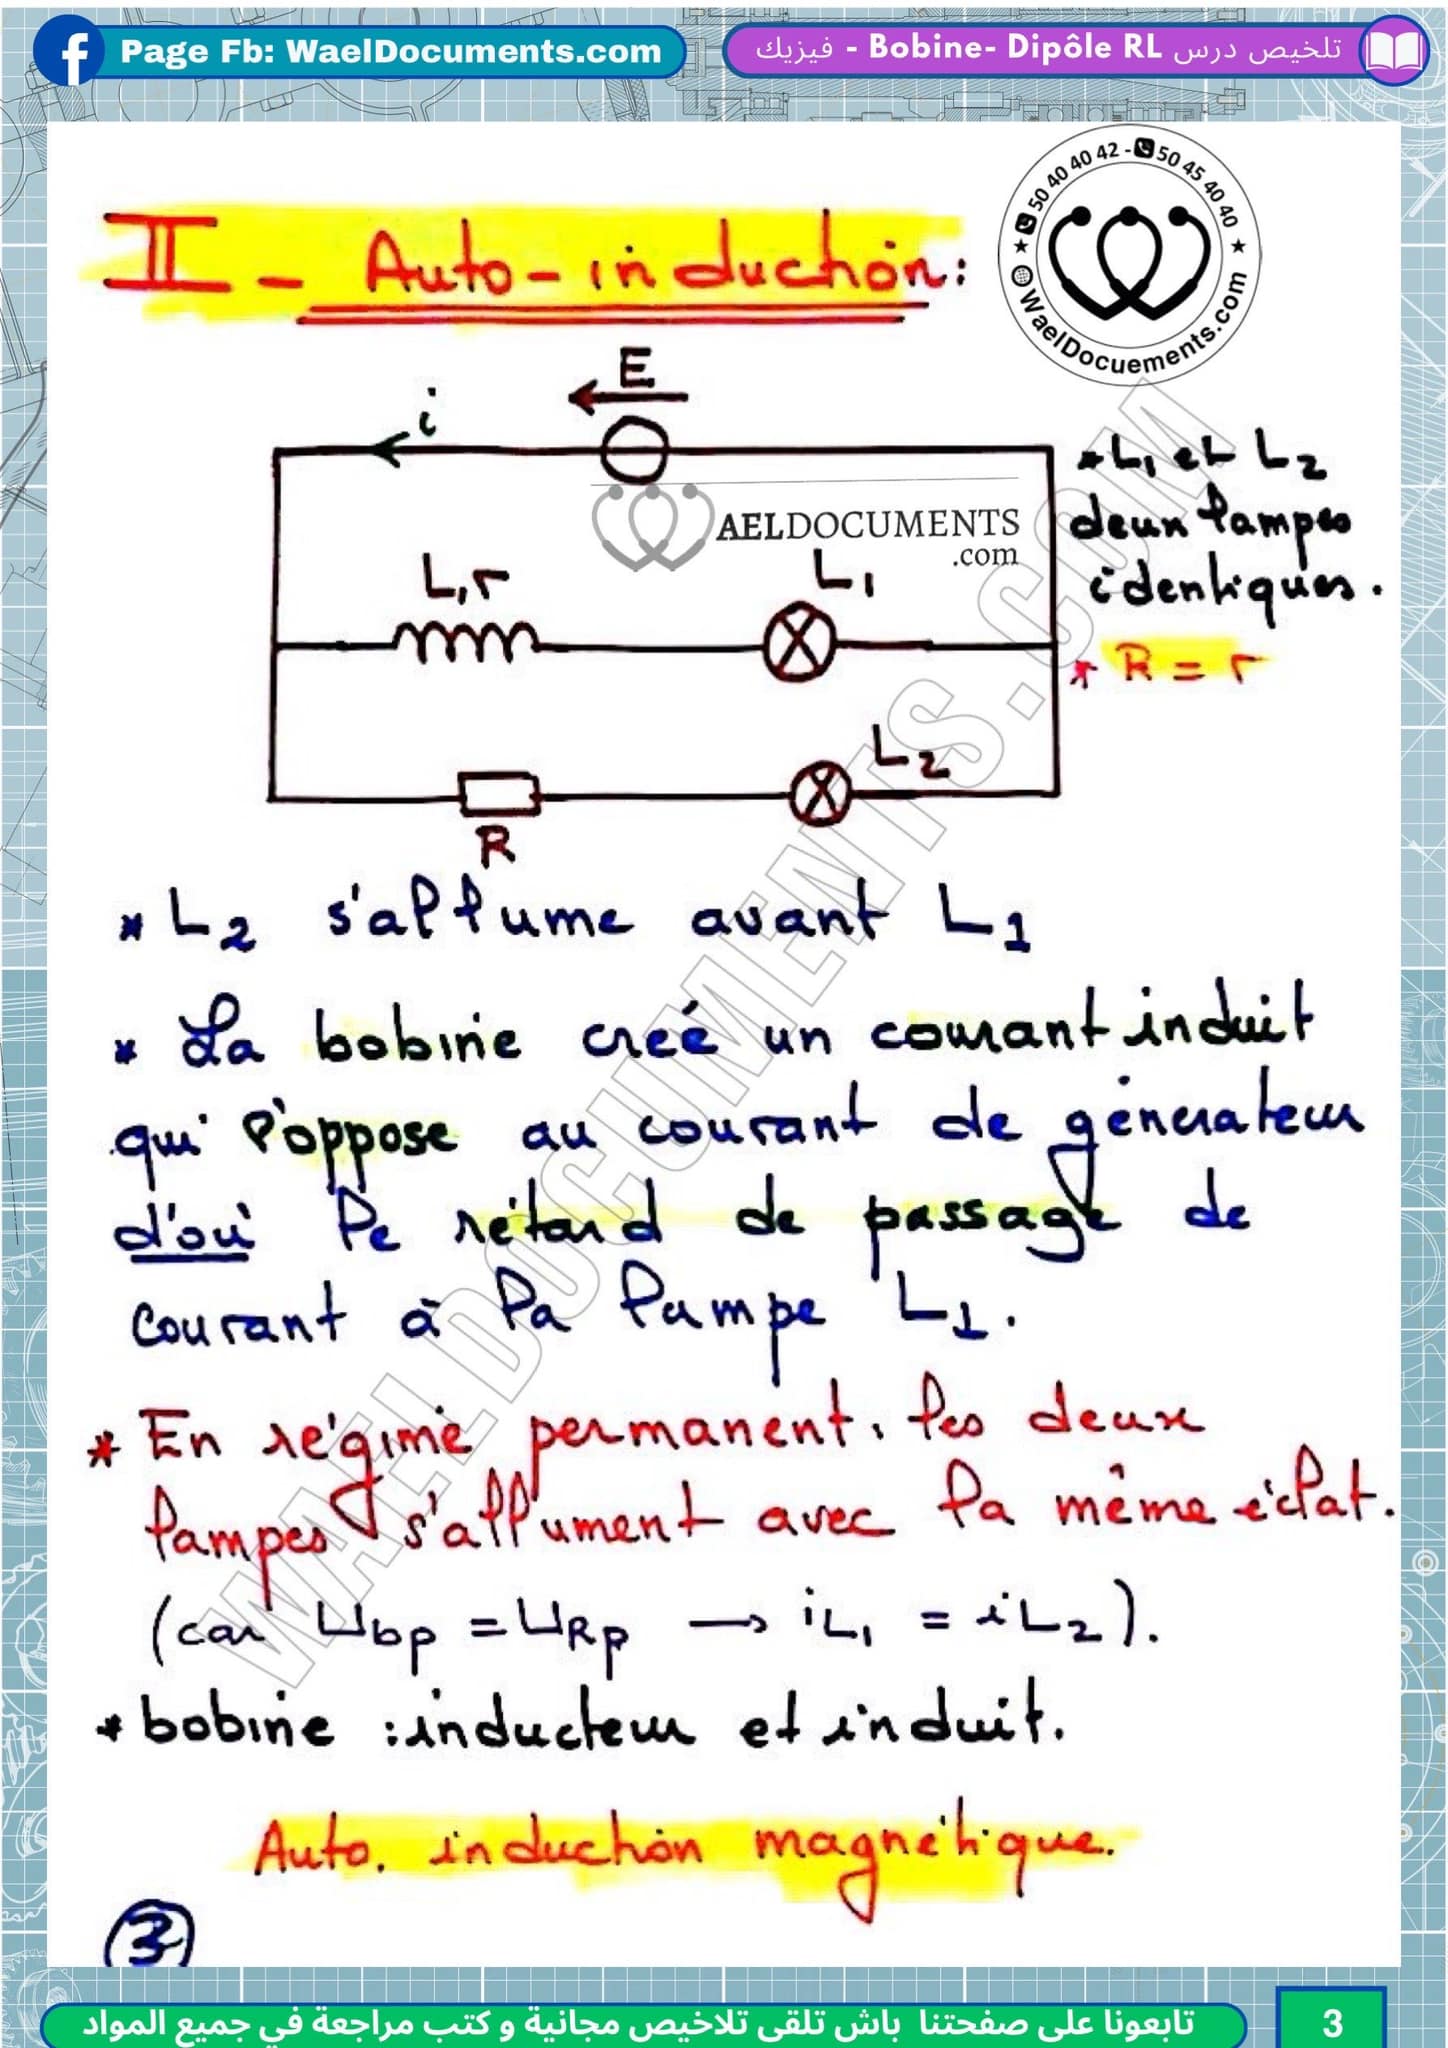 Page Fb: WaelDocuments.com
تلخيص درس Bobine- Dipôle RL - فيزيك
50 40 40 42 - 50 45 40 40
WaelDocuements.com
II - Auto-induction:
E
i
AELDOCUMENTS
.com
* L1 et L2
deux lampes
identiques.
* R = r
L,r
L1
L2
R
* L2 s'allume avant L1
* La bobine creé un courant induit
qui s'oppose au courant de génerateur
d'où le rétard de passage de
courant à la lampe L1.
* En régime permanent, les deux
lampes s'allument avec la même éclat.
(car Ubp = URp → iL1 = iL2).
* bobine : inducteur et induit.
Auto. induction magnétique.
3
WAELDOCUMENTS.COM
تابعونا على صفحتنا باش تلقى تلاخيص مجانية و كتب مراجعة في جميع المواد
3